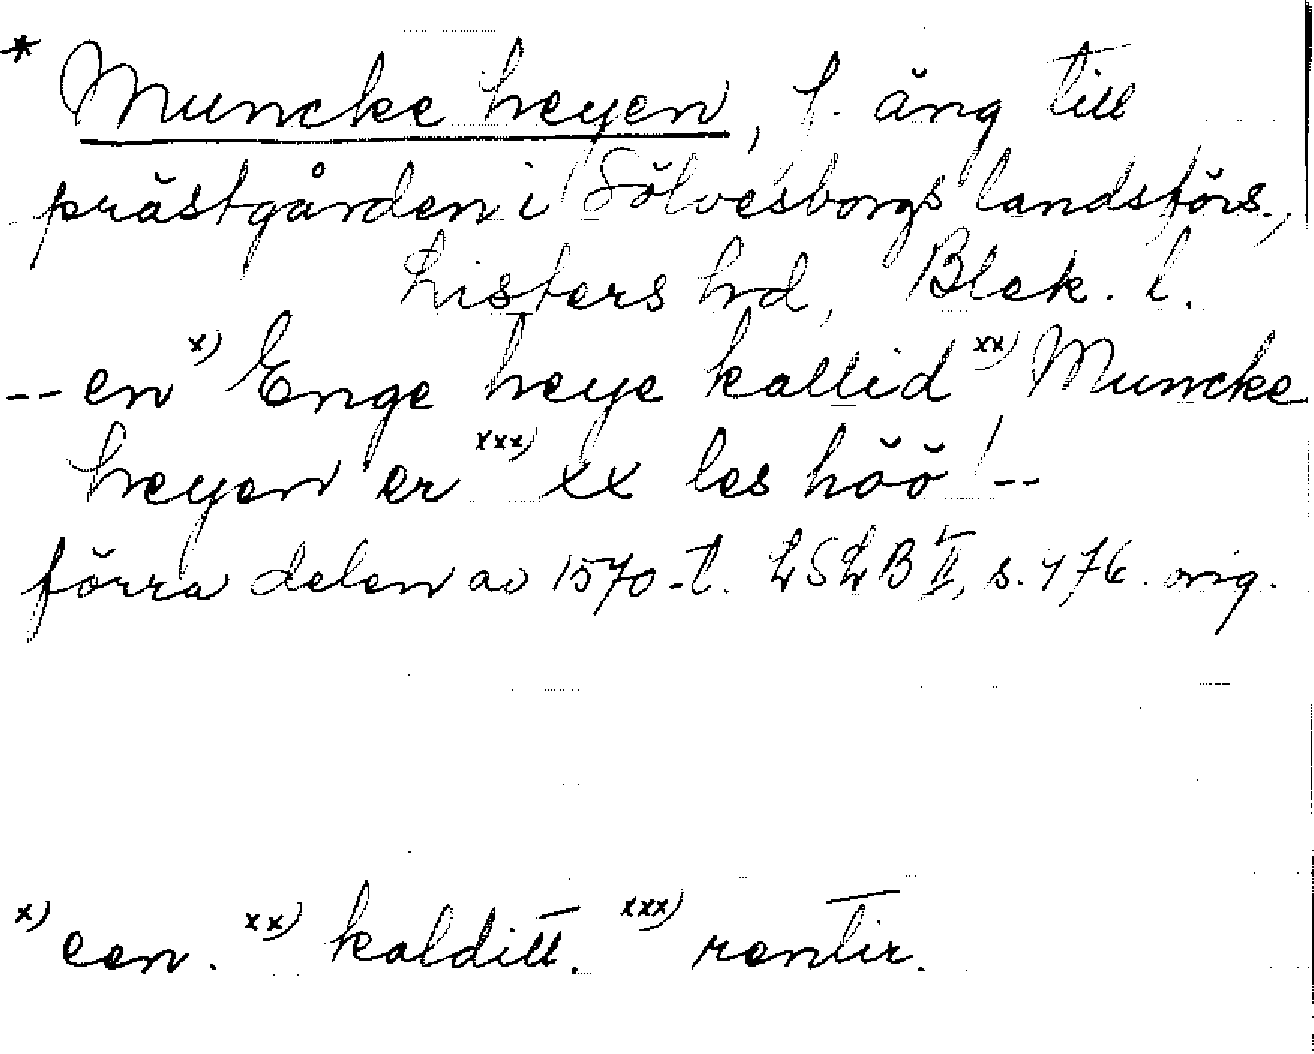 * Muncke heyen, f. äng till
prästgården i Sölvesborgs landsförs.,
Listers hd, Blek. l.
-- en x) Enge heye kallid xx) Muncke
heyen er xxx) xx les höö! --
förra delen av 1570-t. LSLB II, s. 476. orig.
x) een. xx) kalditt. xxx) rentir.